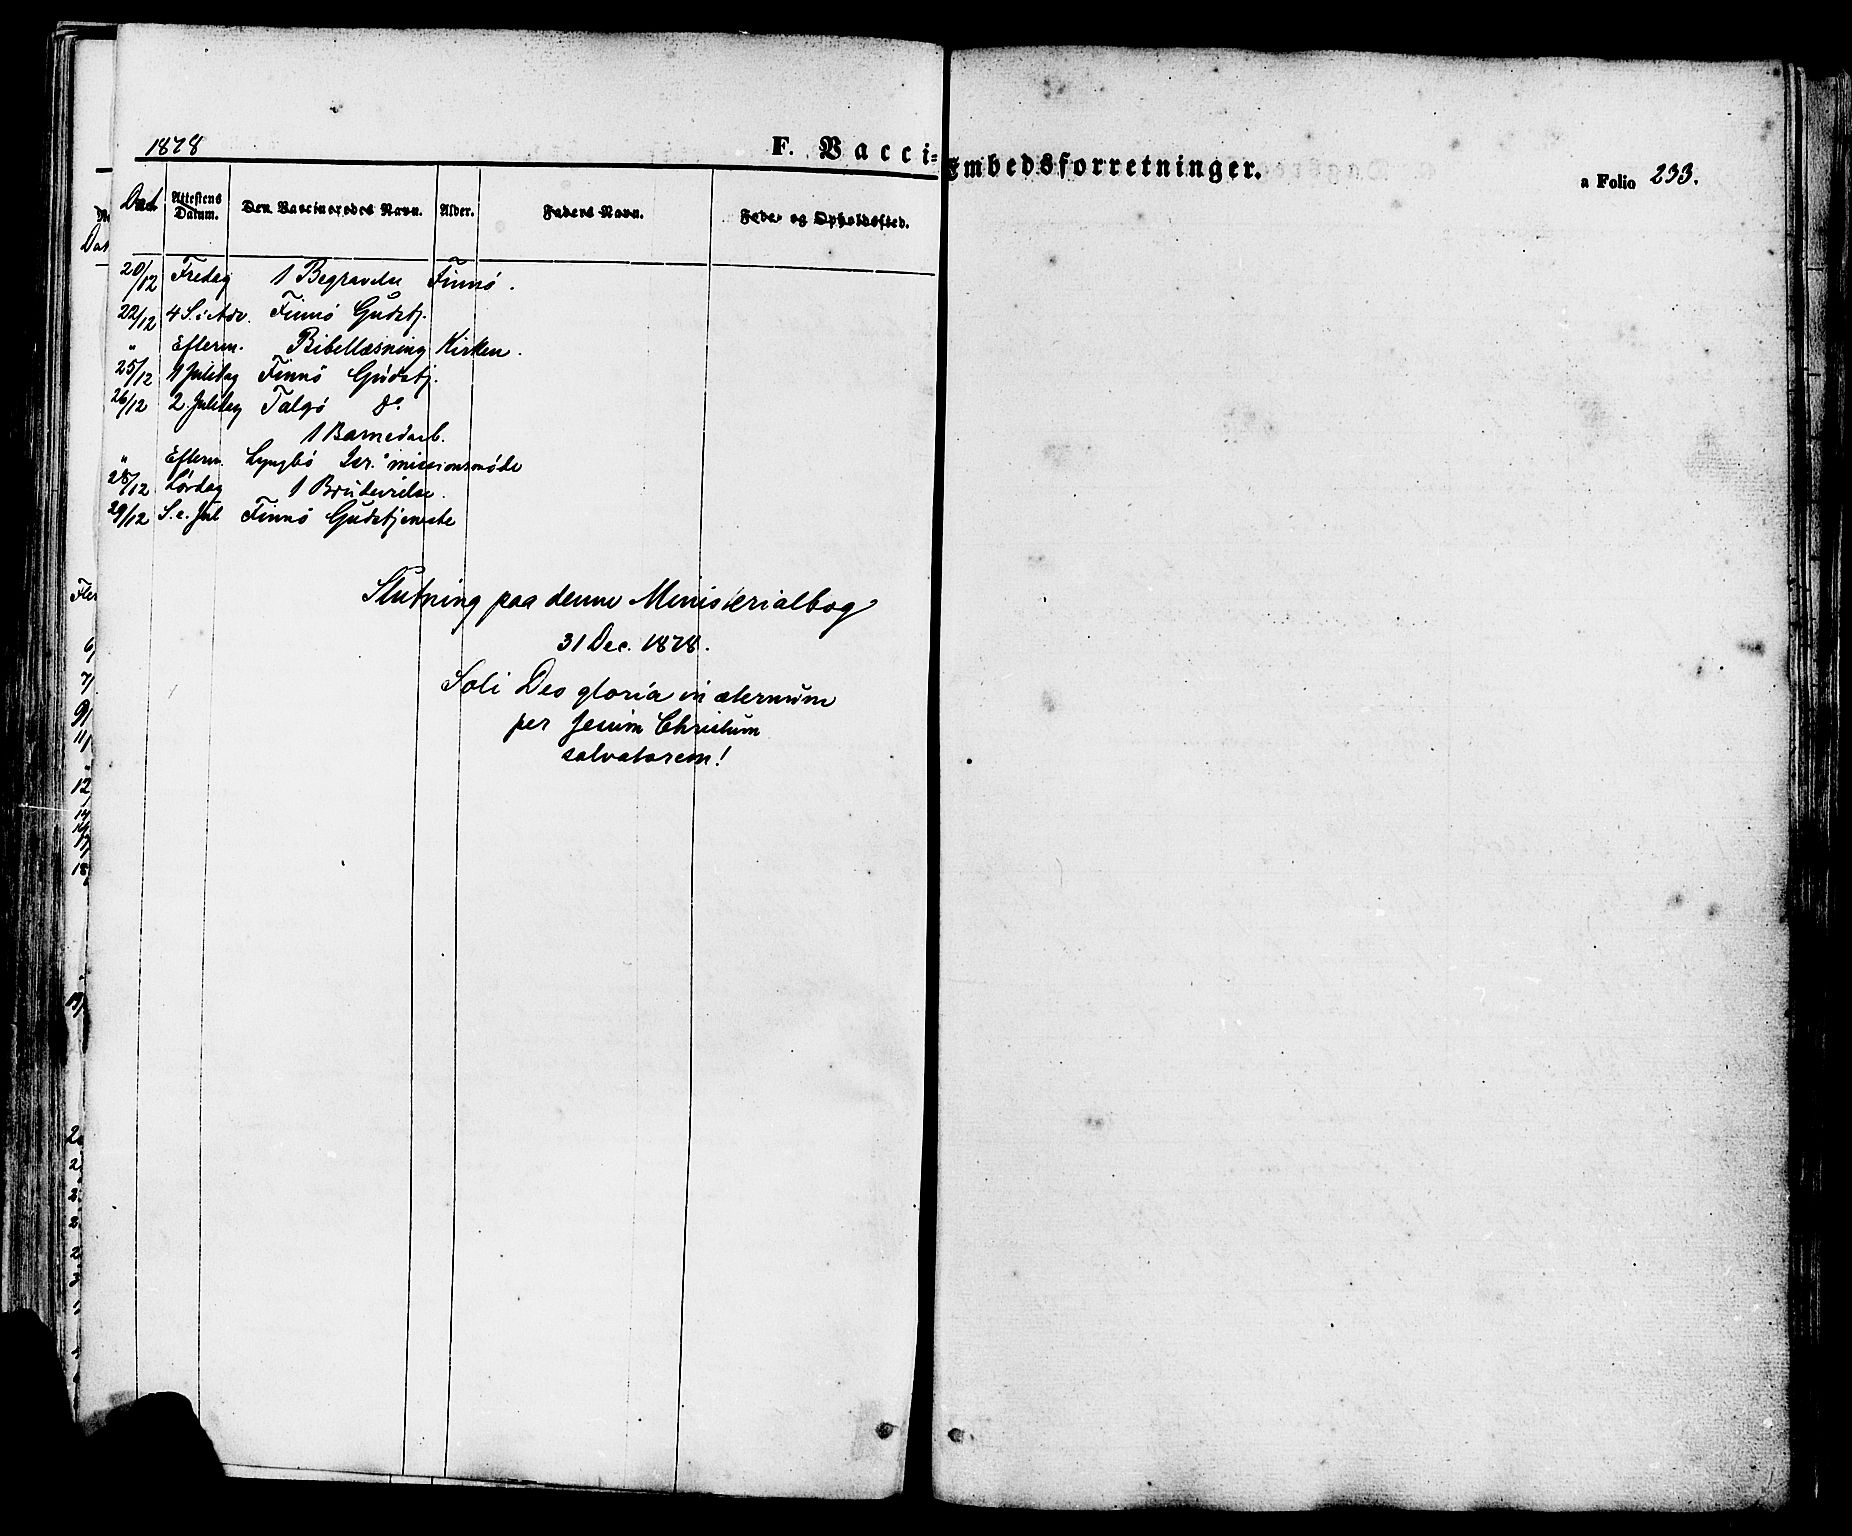 1878
F. Vacci=
Embedsforretninger.
a Folio 233.
Dat. Attestens Datum. Den Vaccineredes Navn. Alder. Faders Navn. Føde- og Opholdssted.
20/12 Fredag 1 Begravelse Finnø.
22/12 4 S. i Adv. Finnø Gudstj.
" Efterm. Bibellæsning Kirken.
25/12 1 Juledag Finnø Gudstj.
26/12 2 Juledag Talgø do
1 Barnedaab.
" Efterm. Lyngbø Isr. missionsmøde
28/12 Lørdag 1 Brudevielse.
29/12 S. e. Jul Finnø Gudstjeneste
Slutning paa denne Ministerialbog
31 Dec. 1878.
Soli Deo gloria in æternum
per Jesum Christum
salvatorem!